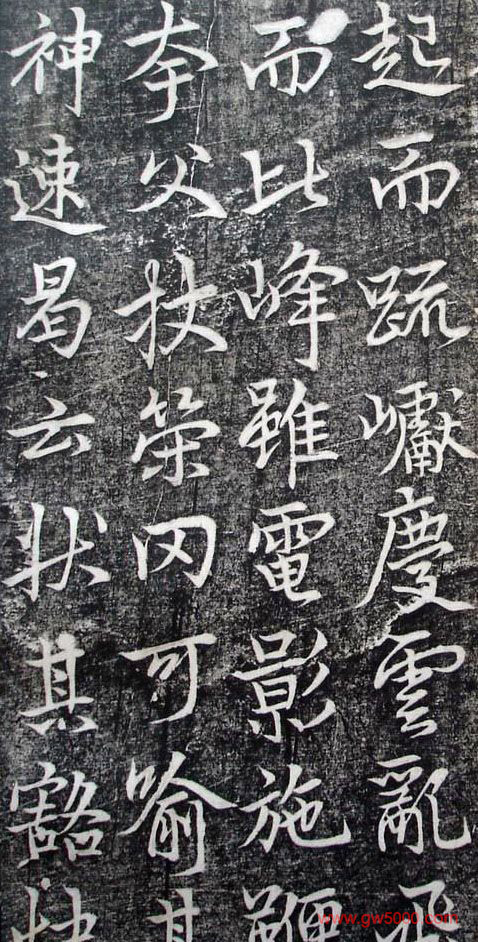 起而疏巘慶雲亂飛
而比峰雖電影施鞭
夸父杖策罔可喻其
神速曷云狀其豁快
www.gw5000.com